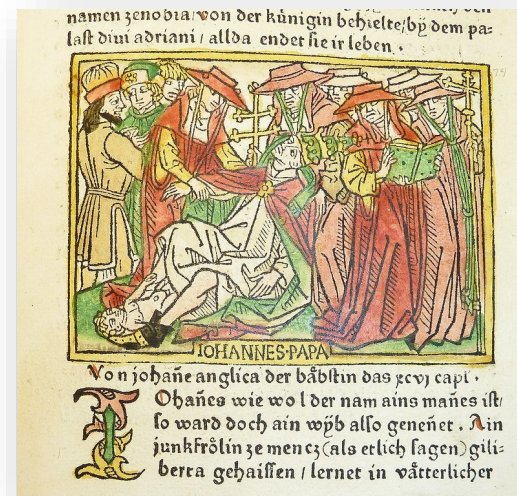 namen zenobia/von der künigin behielte/bÿ dem pa=
last diui adriani / allda endet sie ir leben .
IOHANNES·PAPA
Von johañe anglica der båbstin das xcvj capi .
IOhañes wie wol der nam ains mañes ist/
so ward doch ain wÿb also geneñet . Ain
junkfrŏlin ze mencz (als etlich sagen) gili=
berta gehaissen / lernet in våtterlicher